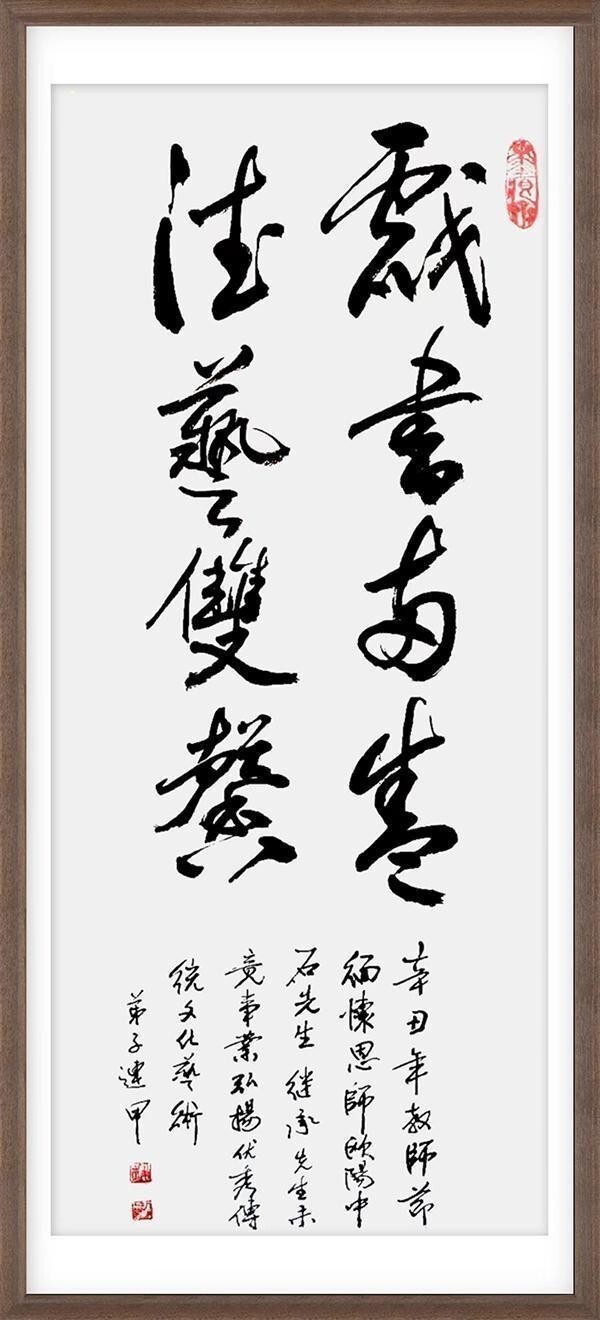 戲書兩
德藝雙馨
辛丑年教師節
緬懷恩師欧陽中
石先生继承先生未
竟事業弘揚优秀傳
統文化藝術
弟子連甲